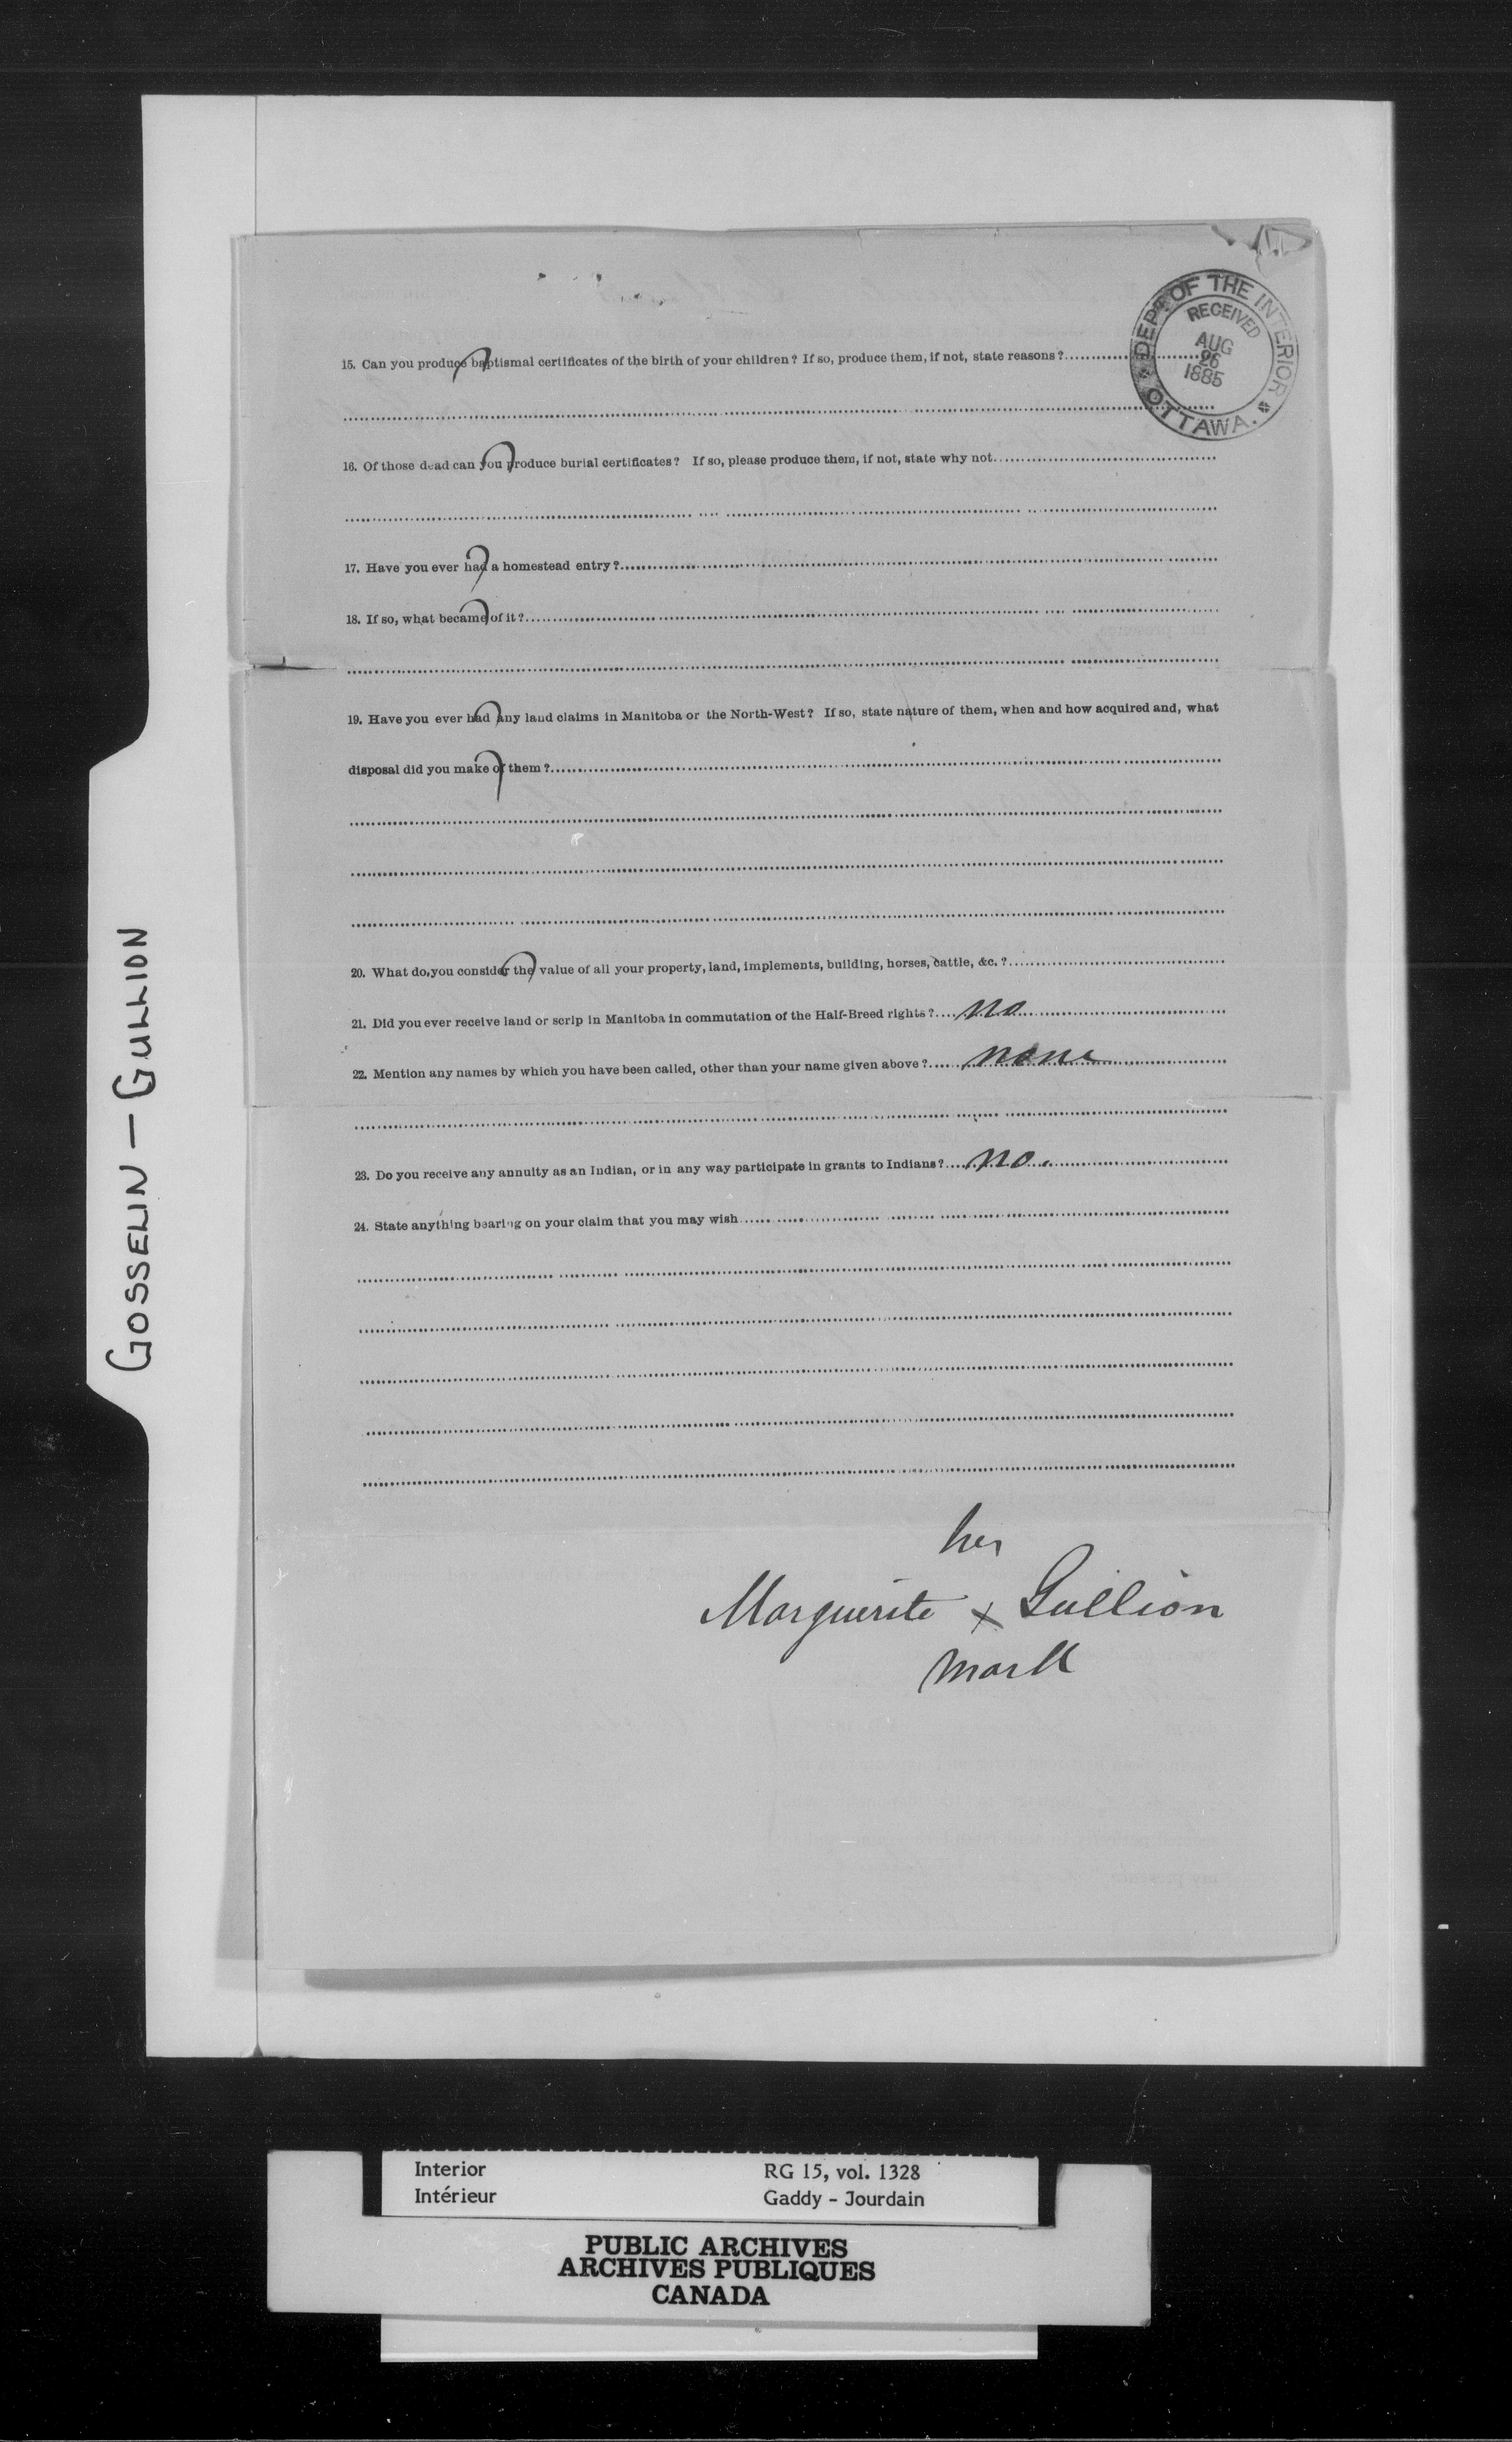 DEPT. OF THE INTERIOR
RECEIVED
AUG
26
1885
OTTAWA.
15. Can you produce baptismal certificates of the birth of your children? If so, produce them, if not, state reasons?
16. Of those dead can you produce burial certificates? If so, please produce them, if not, state why not
17. Have you ever had a homestead entry?
18. If so, what became of it?
19. Have you ever had any land claims in Manitoba or the North-West? If so, state nature of them, when and how acquired and, what
disposal did you make of them?
20. What do you consider the value of all your property, land, implements, building, horses, cattle, &c.?
21. Did you ever receive land or scrip in Manitoba in commutation of the Half-Breed rights? no
22. Mention any names by which you have been called, other than your name given above? none
23. Do you receive any annuity as an Indian, or in any way participate in grants to Indians? no.
24. State anything bearing on your claim that you may wish
her
Marguerite x Gullion
mark
GOSSELIN - GULLION
Interior RG 15, vol. 1328
Intérieur Gaddy - Jourdain
PUBLIC ARCHIVES
ARCHIVES PUBLIQUES
CANADA